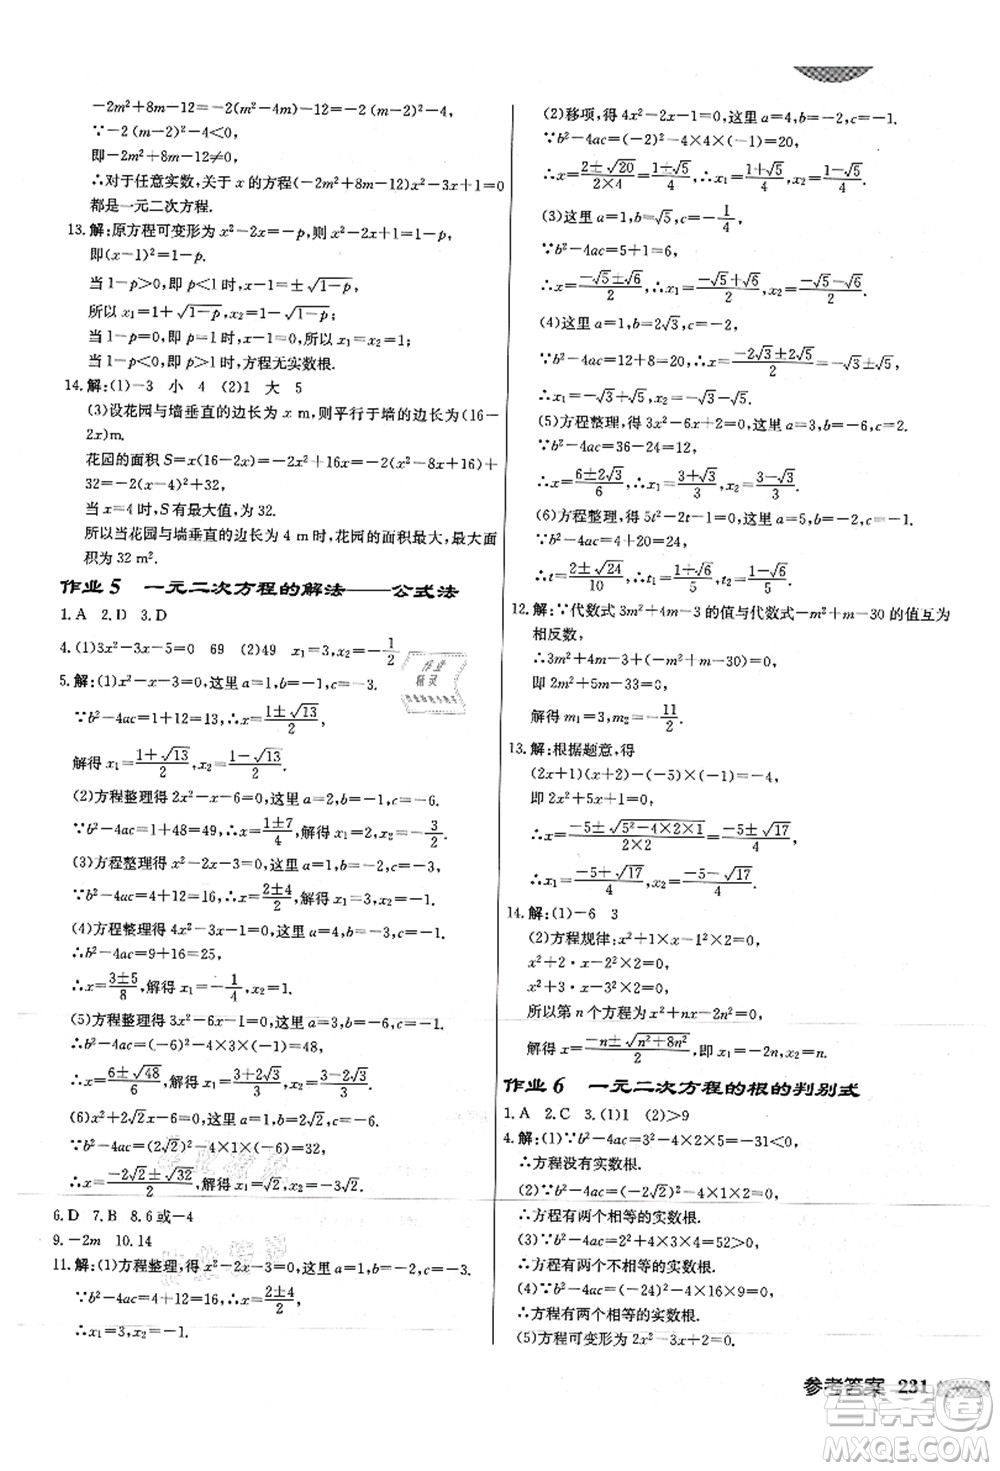 －2m²＋8m－12＝－2(m²－4m)－12＝
∵－2(m－2)²－4＜0,
即－2m²＋8m－12≠0,
∴对于任意实数,关于x的方程(－2m²＋8m－12)x²－3x＋1＝0
都是一元二次方程.
13.解:原方程可变形为x²－2x＝－p,则x²－2x＋1＝1－p,
即(x－1)²＝1－p.
当1－p＞0,即p＜1时,x－1＝±√(1－p),
所以x₁＝1＋√(1－p),x₂＝1－√(1－p);
当1－p＝0,即p＝1时,x－1＝0,所以x₁＝x₂＝1;
当1－p＜0,即p＞1时,方程无实数根.
14.解:(1)－3 小 4 (2)1 大 5
(3)设花园与墙垂直的边长为x m,则平行于墙的边长为(16－
2x)m.
花园的面积S＝x(16－2x)＝－2x²＋16x＝－2(x²－8x＋16)＋
32＝－2(x－4)²＋32,
当x＝4时,S有最大值,为32.
所以当花园与墙垂直的边长为4 m时,花园的面积最大,最大面
积为32 m².
作业5 一元二次方程的解法——公式法
1.A 2.D 3.D
4.(1)3x²－3x－5＝0 69 (2)49 x₁＝3,x₂＝－1/2
5.解:(1)x²－x－3＝0,这里a＝1,b＝－1,c＝－3.
∵b²－4ac＝1＋12＝13,∴x＝(1±√13)/2,
解得x₁＝(1＋√13)/2,x₂＝(1－√13)/2.
(2)方程整理得2x²－x－6＝0,这里a＝2,b＝－1,c＝－6.
∵b²－4ac＝1＋48＝49,∴x＝(1±7)/4,解得x₁＝2,x₂＝－3/2.
(3)方程整理得x²－2x－3＝0,这里a＝1,b＝－2,c＝－3,
∵b²－4ac＝4＋12＝16,∴x＝(2±4)/2,解得x₁＝3,x₂＝－1.
(4)方程整理得4x²－3x－1＝0,这里a＝4,b＝－3,c＝－1,
∴b²－4ac＝9＋16＝25,
∴x＝(3±5)/8,解得x₁＝－1/4,x₂＝1.
(5)方程整理得3x²－6x－1＝0,这里a＝3,b＝－6,c＝－1,
∵b²－4ac＝(－6)²－4×3×(－1)＝48,
∴x＝(6±√48)/6,解得x₁＝(3＋2√3)/3,x₂＝(3－2√3)/3.
(6)方程整理得x²＋2√2x－6＝0,这里a＝1,b＝2√2,c＝－6,
∵b²－4ac＝(2√2)²－4×1×(－6)＝32,
∴x＝(－2√2±√32)/2,解得x₁＝√2,x₂＝－3√2.
6.D 7.B 8.6或－4
9.－2m 10.14
11.解:(1)方程整理,得x²－2x－3＝0,这里a＝1,b＝－2,c＝－3.
∵b²－4ac＝4＋12＝16,∴x＝(2±4)/2,
∴x₁＝3,x₂＝－1.
(2)移项,得4x²－2x－1＝0,这里a＝4,b＝－2,c＝－1.
∵b²－4ac＝(－2)²－4×4×(－1)＝20,
∴x＝(2±√20)/(2×4)＝(1±√5)/4,∴x₁＝(1＋√5)/4,x₂＝(1－√5)/4.
(3)这里a＝1,b＝√5,c＝－1/4.
∵b²－4ac＝5＋1＝6,
∴x＝(－√5±√6)/2,∴x₁＝(－√5＋√6)/2,x₂＝(－√5－√6)/2.
(4)这里a＝1,b＝2√3,c＝－2,
∵b²－4ac＝12＋8＝20,∴x＝(－2√3±2√5)/2＝－√3±√5,
∴x₁＝－√3＋√5,x₂＝－√3－√5.
(5)方程整理,得3x²－6x＋2＝0,这里a＝3,b＝－6,c＝2.
∵b²－4ac＝36－24＝12,
∴x＝(6±2√3)/6,∴x₁＝(3＋√3)/3,x₂＝(3－√3)/3.
(6)方程整理,得5t²－2t－1＝0,这里a＝5,b＝－2,c＝－1,
∵b²－4ac＝4＋20＝24,
∴t＝(2±2√6)/10,∴t₁＝(1＋√6)/5,t₂＝(1－√6)/5.
12.解:∵代数式3m²＋4m－3的值与代数式－m²＋m－30的值互为
相反数,
∴3m²＋4m－3－m²＋m－30＝0,
即2m²＋5m－33＝0,
解得m₁＝3,m₂＝－11/2.
13.解:根据题意,得
(2x＋1)(x＋2)－(－5)×(－1)＝－4,
即2x²＋5x＋1＝0,
∴x＝(－5±√(5²－4×2×1))/(2×2)＝(－5±√17)/4,
∴x₁＝(－5＋√17)/4,x₂＝(－5－√17)/4.
14.解:(1)－6 3
(2)方程规律:x²＋1·x－2×1²＝0,
x²＋2·x－2×2²＝0,
x²＋3·x－2×3²＝0,
所以第n个方程为x²＋nx－2n²＝0,
解得x＝(－n±√(n²＋8n²))/2,即x₁＝－2n,x₂＝n.
作业6 一元二次方程的根的判别式
1.A 2.C 3.(1)1 (2)＞9
4.解:(1)∵b²－4ac＝3²－4×2×5＝－31＜0,
∴方程没有实数根.
(2)∵b²－4ac＝(－2√2)²－4×1×2＝0,
∴方程有两个相等的实数根.
(3)∵b²－4ac＝2²－4×4×(－3)＝52＞0,
∴方程有两个不相等的实数根.
(4)∵b²－4ac＝(－24)²－4×16×9＝0,
∴方程有两个相等的实数根.
(5)方程可变形为2x²－3x＋2＝0.
参考答案 231
作业
精灵
答案圈
MXQE.COM